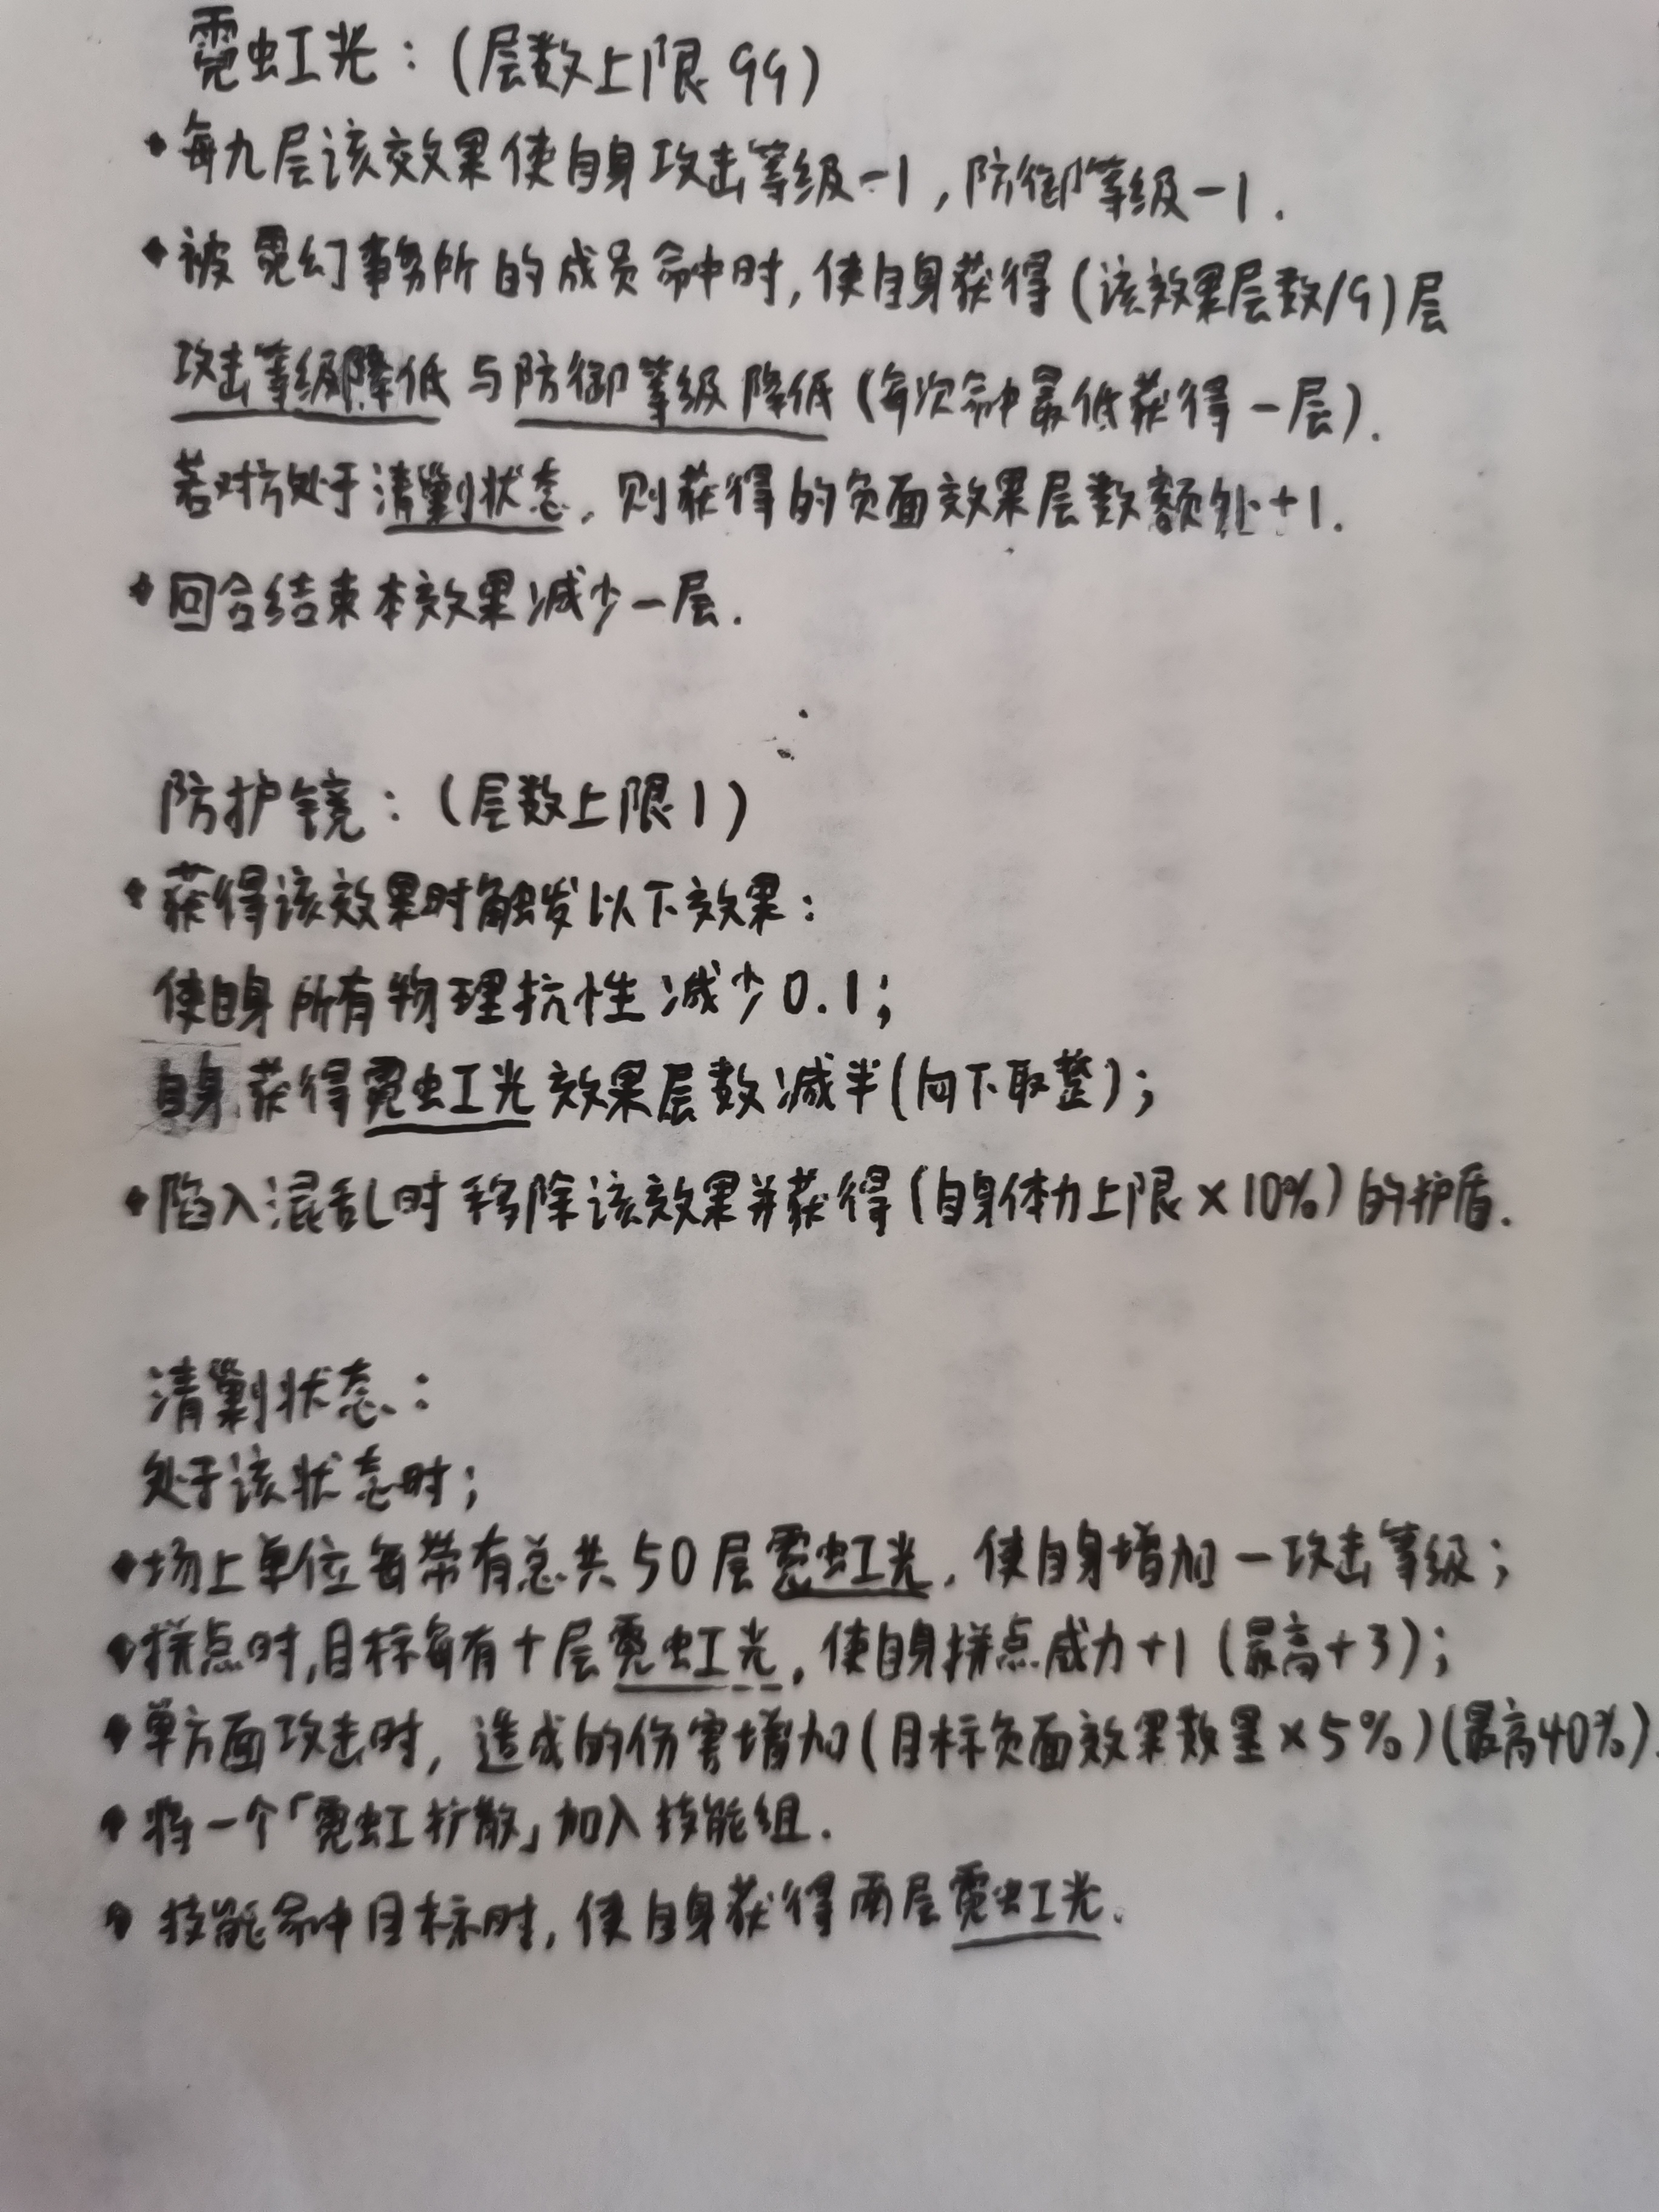 霓虹光：(层数上限99)
·每九层该效果使自身攻击等级-1，防御等级-1.
·被霓幻事务所的成员命中时，使自身获得(该效果层数/9)层
攻击等级降低与防御等级降低(每次命中最低获得一层).
若对方处于清剿状态，则获得的负面效果层数额外+1.
·回合结束本效果减少一层.
防护镜：(层数上限1)
·获得该效果时触发以下效果：
使自身所有物理抗性减少0.1；
自身获得霓虹光效果层数减半(向下取整)；
·陷入混乱时移除该效果并获得(自身体力上限×10%)的护盾.
清剿状态：
处于该状态时；
·场上单位每带有总共50层霓虹光，使自身增加一攻击等级；
·拼点时，目标每有十层霓虹光，使自身拼点威力+1(最高+3)；
·单方面攻击时，造成的伤害增加(目标负面效果数量×5%)(最高40%).
·将一个「霓虹扩散」加入技能组.
·技能命中目标时，使自身获得两层霓虹光。